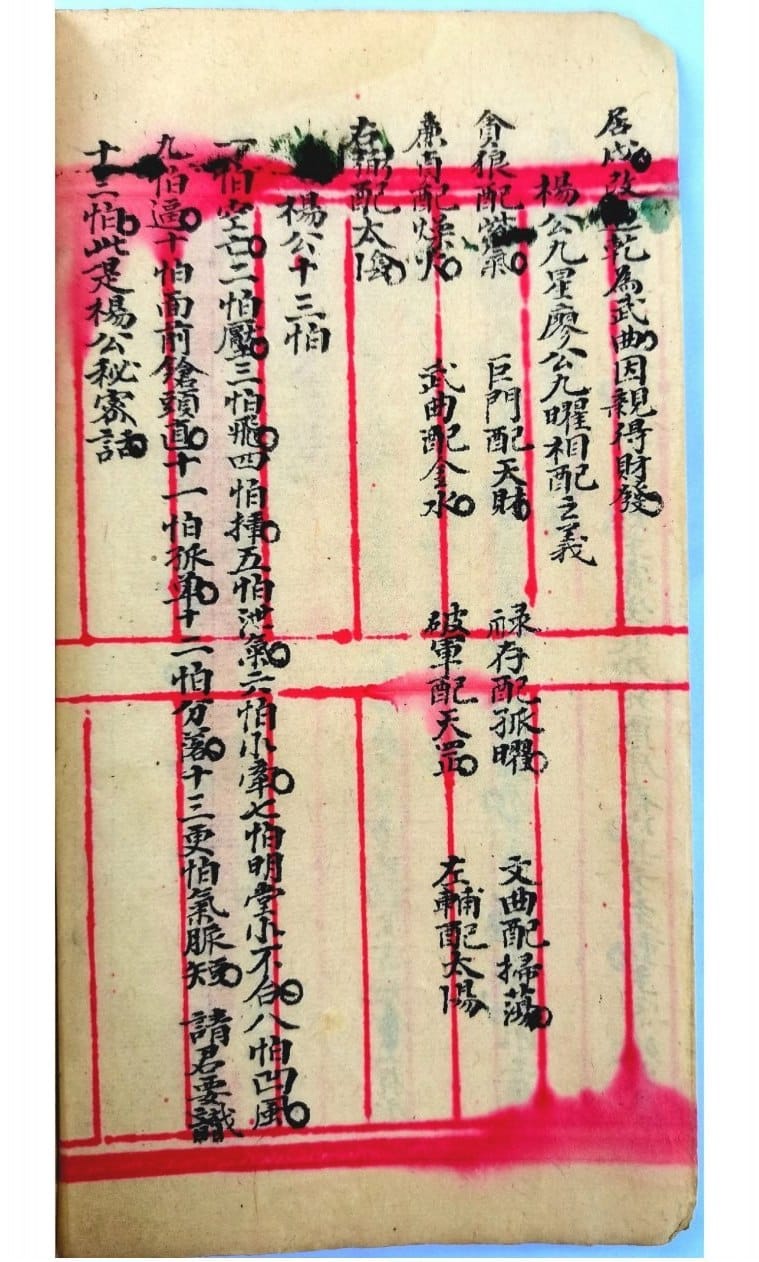 居戌改乾為武曲因親得財發
楊公九星廖公九曜相配之義
貪狼配紫氣 巨門配天財 祿存配孤曜 文曲配掃蕩
廉貞配燥火 武曲配金水 破軍配天罡 左輔配太陽
右弼配太陰
楊公十三怕
一怕空亡二怕壓三怕飛四怕撞五怕泄氣六怕小窄七怕明堂小不合八怕凹風
九怕逼十怕面前鎗頭直十一怕孤單十二怕分落十三更怕氣脈短 請君要識
十三怕此是楊公秘密話